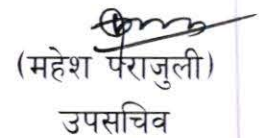 (महेश पराजुली)
उपसचिव